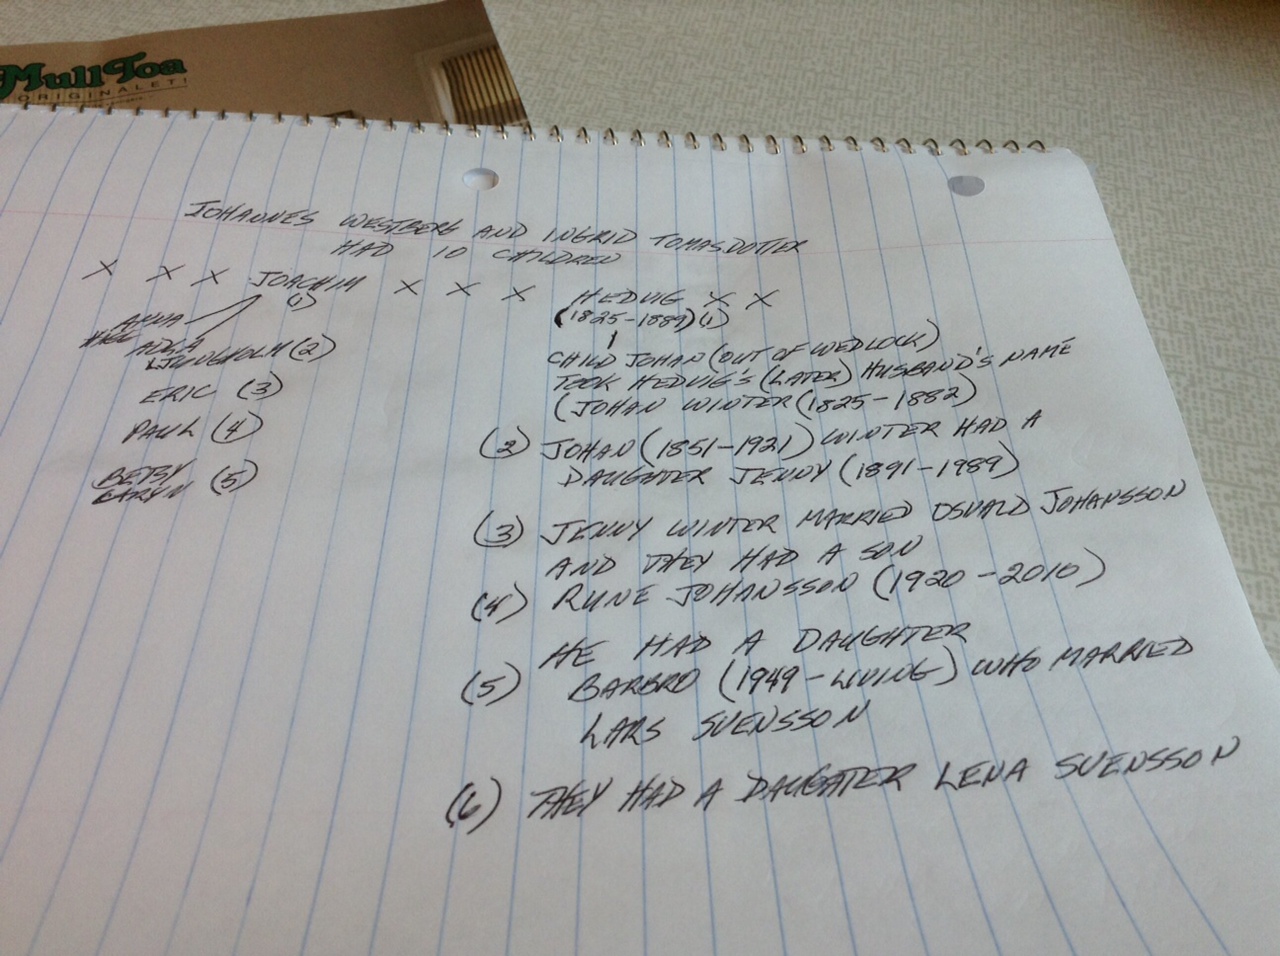 MullToa
ORIGINALET!
JOHANNES WESTBERG AND INGRID TOMASDOTTER
HAD 10 CHILDREN
X X X JOACHIM X X X HEDVIG X X
(1)
(1825-1889)(1)
ANNA
LJUNGHOLM (2)
ERIC (3)
PAUL (4)
BETSY
CARYN (5)
CHILD JOHAN (OUT OF WEDLOCK)
TOOK HEDVIG'S (LATER) HUSBAND'S NAME
(JOHAN WINTER (1825-1882)
(2) JOHAN (1851-1921) WINTER HAD A
DAUGHTER JENNY (1891-1989)
(3) JENNY WINTER MARRIED OSVALD JOHANSSON
AND THEY HAD A SON
(4) RUNE JOHANSSON (1920-2010)
HE HAD A DAUGHTER
(5) BARBRO (1949-LIVING) WHO MARRIED
LARS SVENSSON
(6) THEY HAD A DAUGHTER LENA SVENSSON